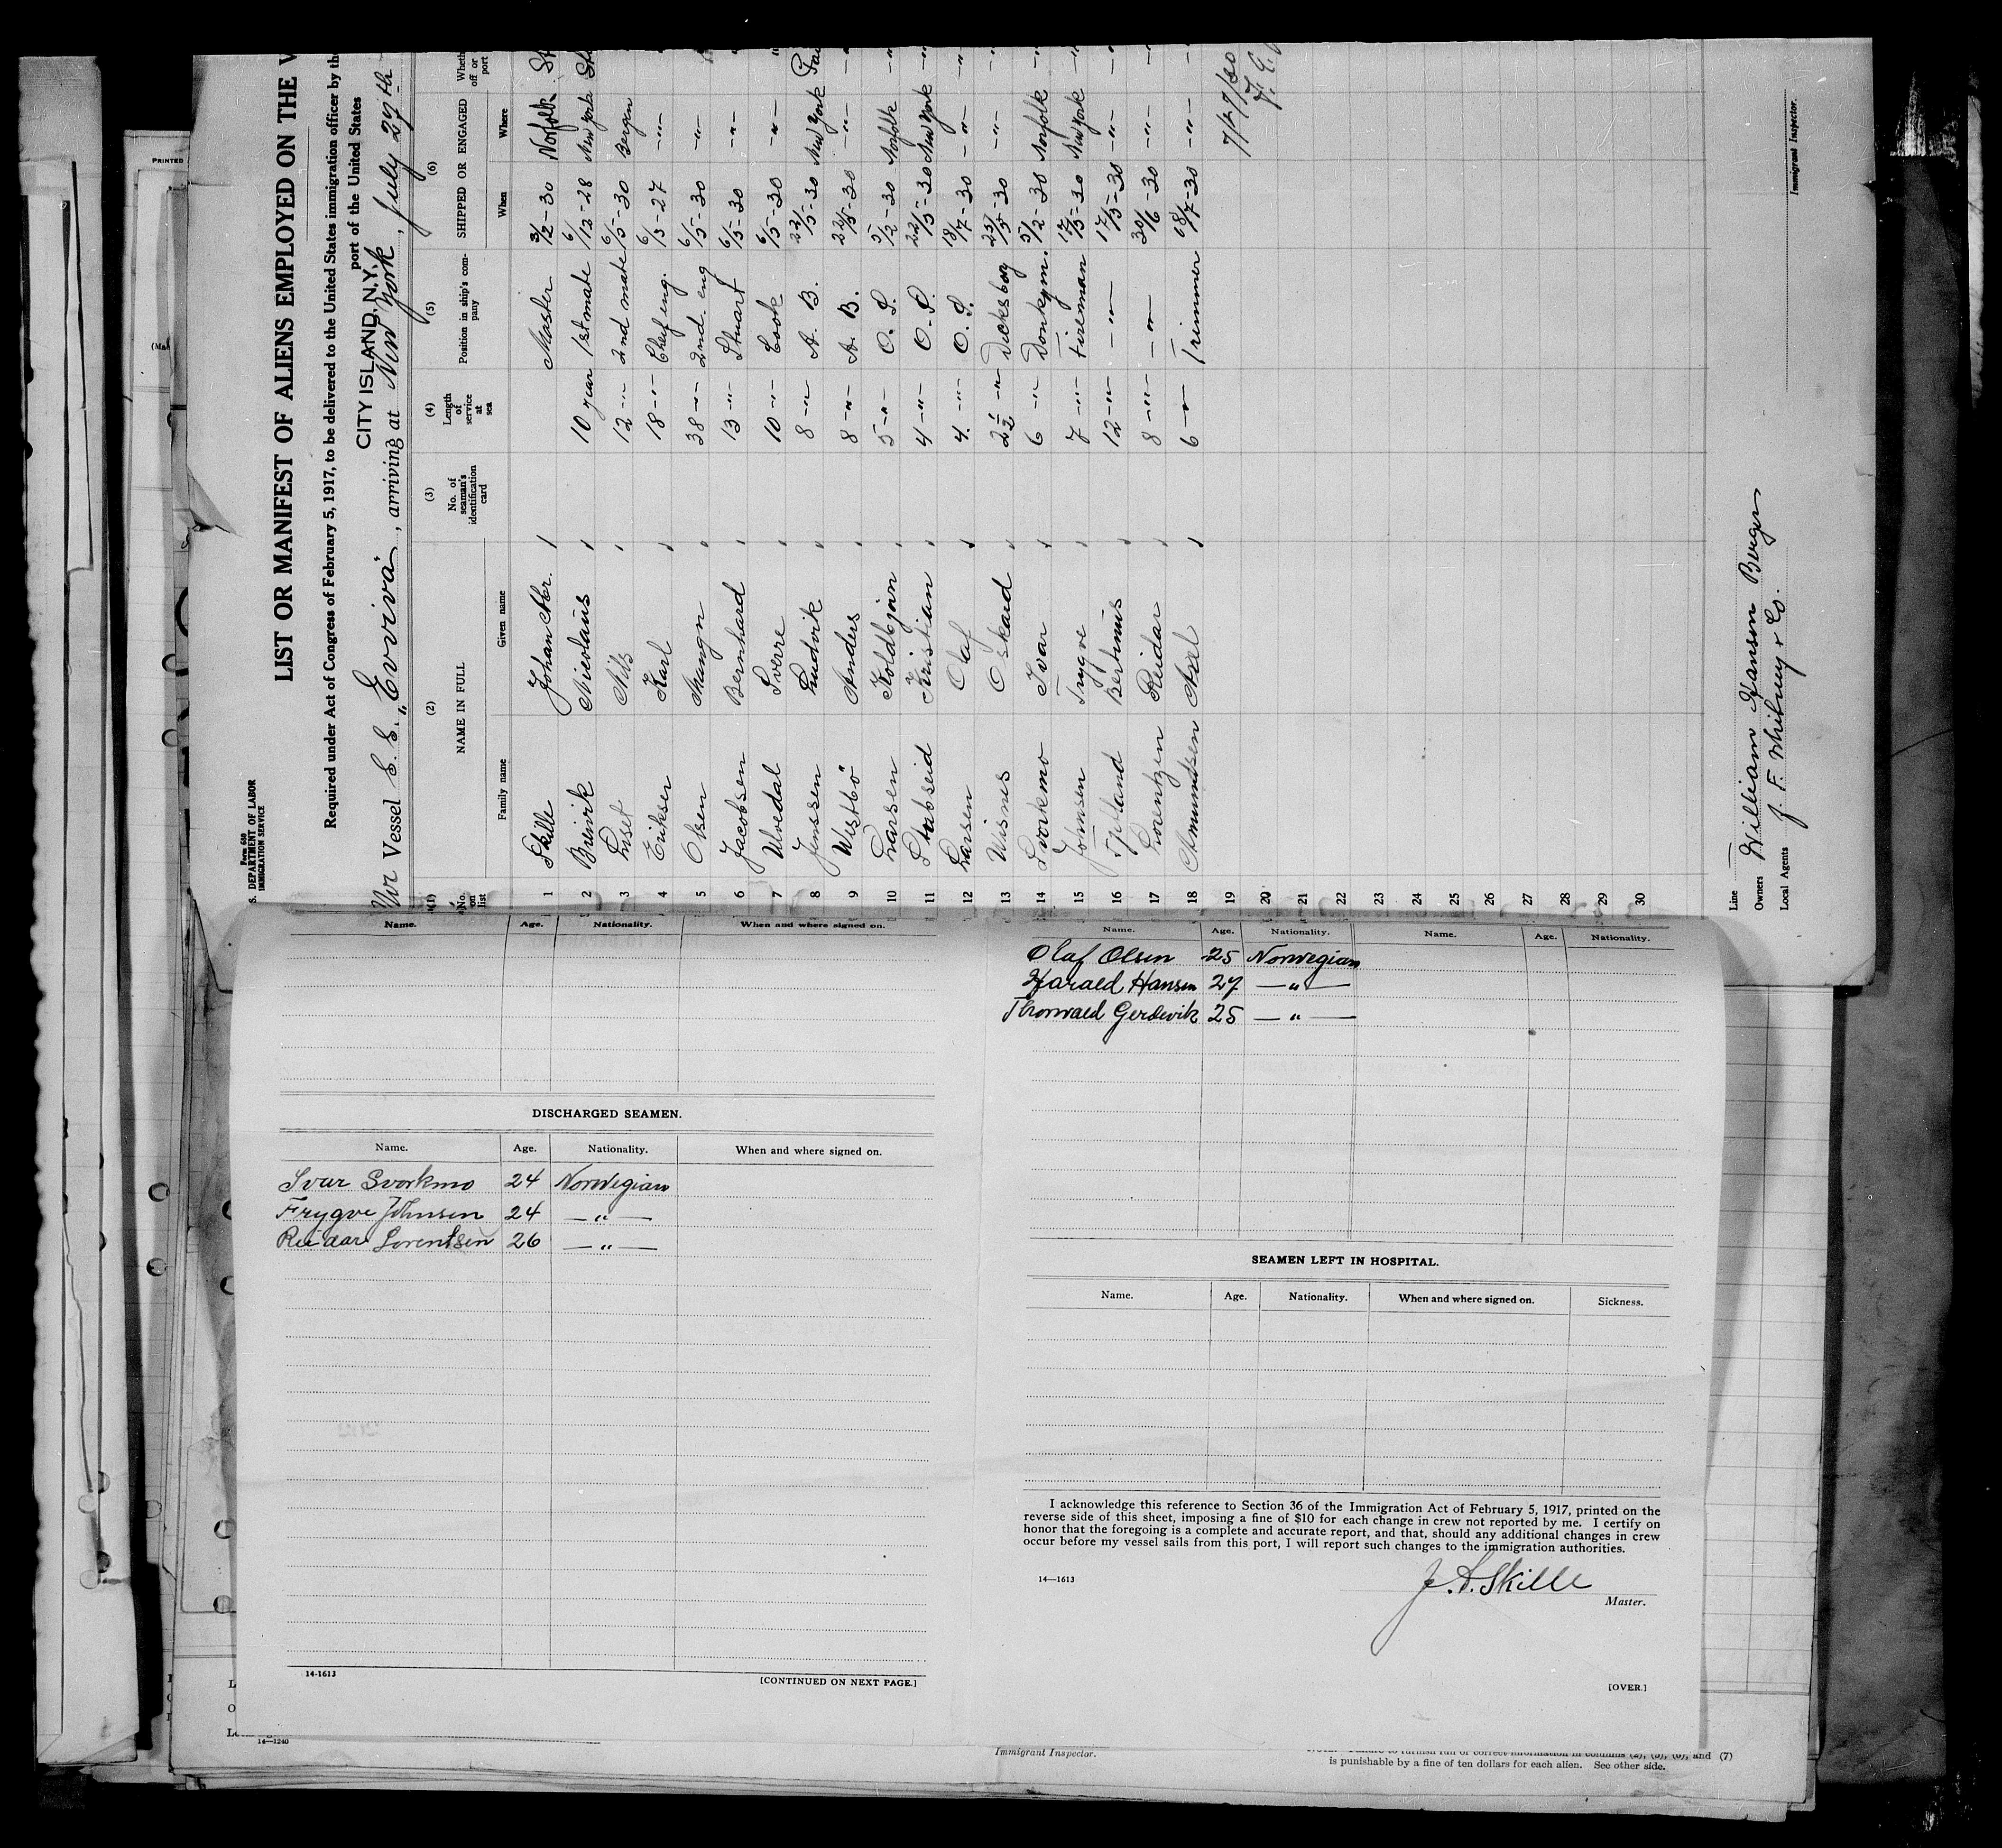 Form 680
S. DEPARTMENT OF LABOR
IMMIGRATION SERVICE
LIST OR MANIFEST OF ALIENS EMPLOYED ON THE V
Required under Act of Congress of February 5, 1917, to be delivered to the United States immigration officer by the
port of the United States
CITY ISLAND, N.Y.
Vessel S. S. "Evviva", arriving at New York, July 27th
(1) (2) (3) (4) (5) (6)
No. on list NAME IN FULL No. of seaman's identification card Length of service at sea Position in ship's company SHIPPED OR ENGAGED Wheth
Family name Given name When Where off or port
1 Skille Johan Abr. Master 3/12-30 Norfolk
2 Breivik Nicolaus 10 year 1st mate 6/12-28 New York
3 Inset Nils 12 -"- 2nd mate 6/5-30 Bergen
4 Eriksen Karl 18 -"- Chef eng. 6/5-27 -"-
5 Olsen Mangn 38 -"- 2nd. eng 6/5-30 -"-
6 Jacobsen Bernhard 13 -"- Stuart 6/5-30 -"-
7 Ulvedal Sverre 10 -"- Cook 6/5-30 -"-
8 Jenssen Ludvik 8 -"- A. B. 22/5-30 New York
9 Westbö Anders 8 -"- A. B. 22/5-30 -"-
10 Larsen Koldbjörn 5 -"- O. S. 5/2-30 Norfolk
11 Stabseid Kristian 4 -"- O. S. 22/5-30 New York
12 Larsen Olaf 4 -"- O. S. 18/7-30 -"-
13 Wisnes Oskard 2½ -"- Decksboy 23/5-30 -"-
14 Svorkmo Ivar 6 -"- Donkym. 5/2-30 Norfolk
15 Johnsen Trygve 7 -"- Fireman 17/5-30 New York
16 Tjelland Bertinius 12 -"- -"- 17/5-30 -"-
17 Lorentzen Reidar 8 -"- -"- 30/6-30 -"-
18 Amundsen Axel 6 -"- Trimmer 18/7-30 -"-
19 7/27/30
20
21
22
23
24
25
26
27
28
29
30
Line
Owners William Hansen Bergen
Local Agents J. F. Whitney & Co.
Immigrant Inspector.
PRINTED
Name. Age. Nationality. When and where signed on.
DISCHARGED SEAMEN.
Name. Age. Nationality. When and where signed on.
Ivar Svorkmo 24 Norwegian
Trygve Johnsen 24 —"—
Reidar Lorentsen 26 —"—
14-1613
[CONTINUED ON NEXT PAGE.]
Name. Age. Nationality. Name. Age. Nationality.
Olaf Olsen 25 Norwegian
Harald Hansen 27 —"—
Thorvald Gerdevik 25 —"—
SEAMEN LEFT IN HOSPITAL.
Name. Age. Nationality. When and where signed on. Sickness.
I acknowledge this reference to Section 36 of the Immigration Act of February 5, 1917, printed on the
reverse side of this sheet, imposing a fine of $10 for each change in crew not reported by me. I certify on
honor that the foregoing is a complete and accurate report, and that, should any additional changes in crew
occur before my vessel sails from this port, I will report such changes to the immigration authorities.
14—1613
J. A. Skille
Master.
[OVER.]
14—1240
Immigrant Inspector.
to furnish full or correct information in columns (2), (5), (6), and (7)
is punishable by a fine of ten dollars for each alien. See other side.